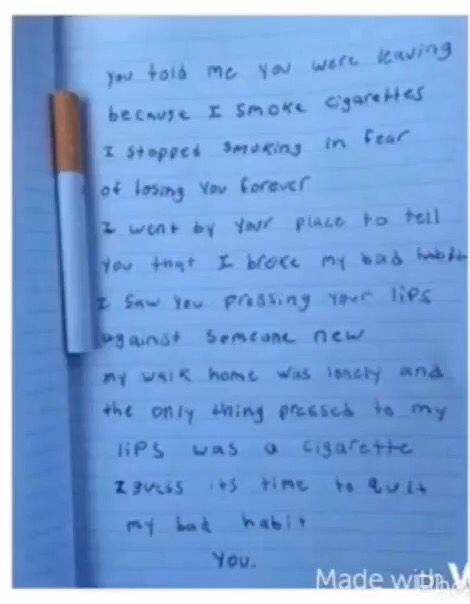 You told me you were leaving
because I smoke cigarettes
I stopped smoking in fear
of losing you forever
I went by your place to tell
you that I broke my bad habit
I saw you pressing your lips
against someone new
my walk home was lonely and
the only thing pressed to my
lips was a cigarette
I guess its time to quit
my bad habit
You.
Made with